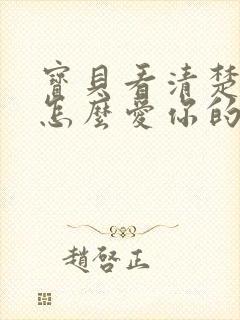 寶貝看清楚
怎麼愛你的
趙啓正